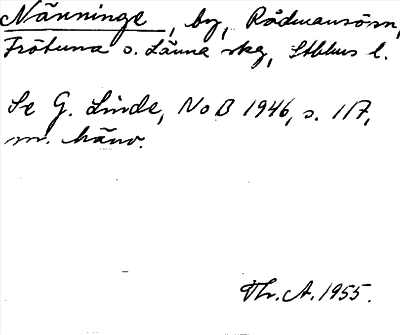 Nänninge, by, Rådmansön,
Frötuna o. Länna skg, Sthlms l.
Se G. Linde, NoB 1946, s. 117,
m. hänv.
Th. A. 1955.